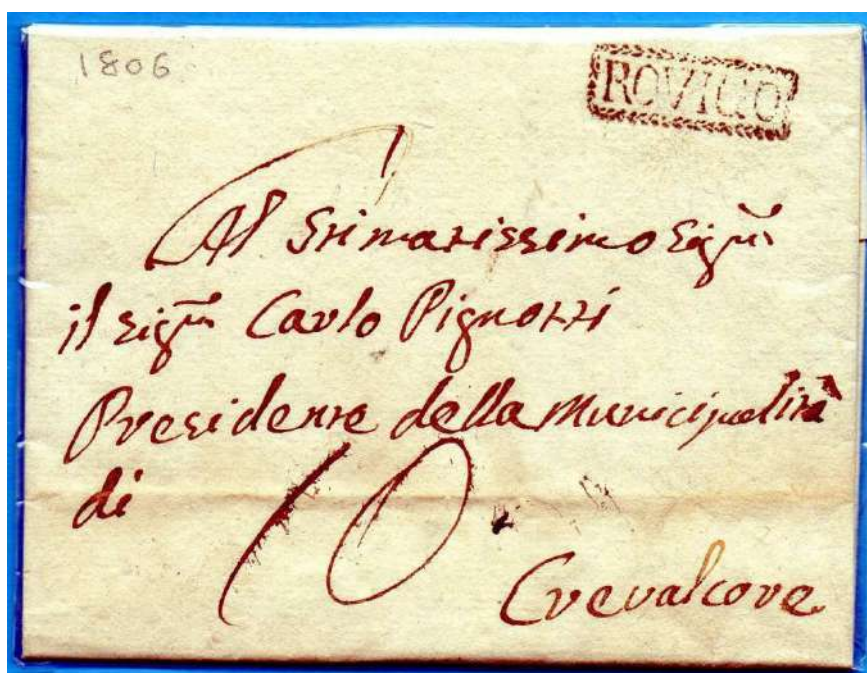 1806
ROVIGO
Al Stimatissimo Sig.re
il Sig.re Carlo Pignotti
Presidente della Municipalità
di
10
Crevalcore